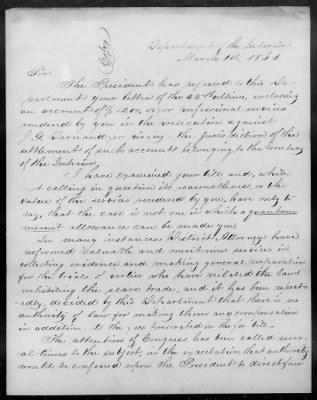 (Copy)
Department of the Interior
March 1861
Sir
The President has referred to this De
partment your letter of the 25th ultimo, inclosing
an account of $ for professional services
rendered by you in the prosecution against
G. for the jurisdiction of the
settlement of such accounts belonging to the Secretary
of the Interior.
I have examined your bill and, while
not calling in question its reasonableness, or the
value of the services rendered by you, have only to
say, that the case is not one in which a quantum
meruit allowance can be made you.
In many instances District Attorneys have
performed valuable and meritorious services in
collecting evidence and making general preparation
for the trials of parties who have violated the law
prohibiting the slave trade, and it has been repeat
edly, decided by this Department that there is no
authority of law for making them any compensation
in addition to the fees prescribed in the fee bill.
The attention of Congress has been called seve
ral times to the subject, in the expectation that authority
would be conferred upon the President to direct fair